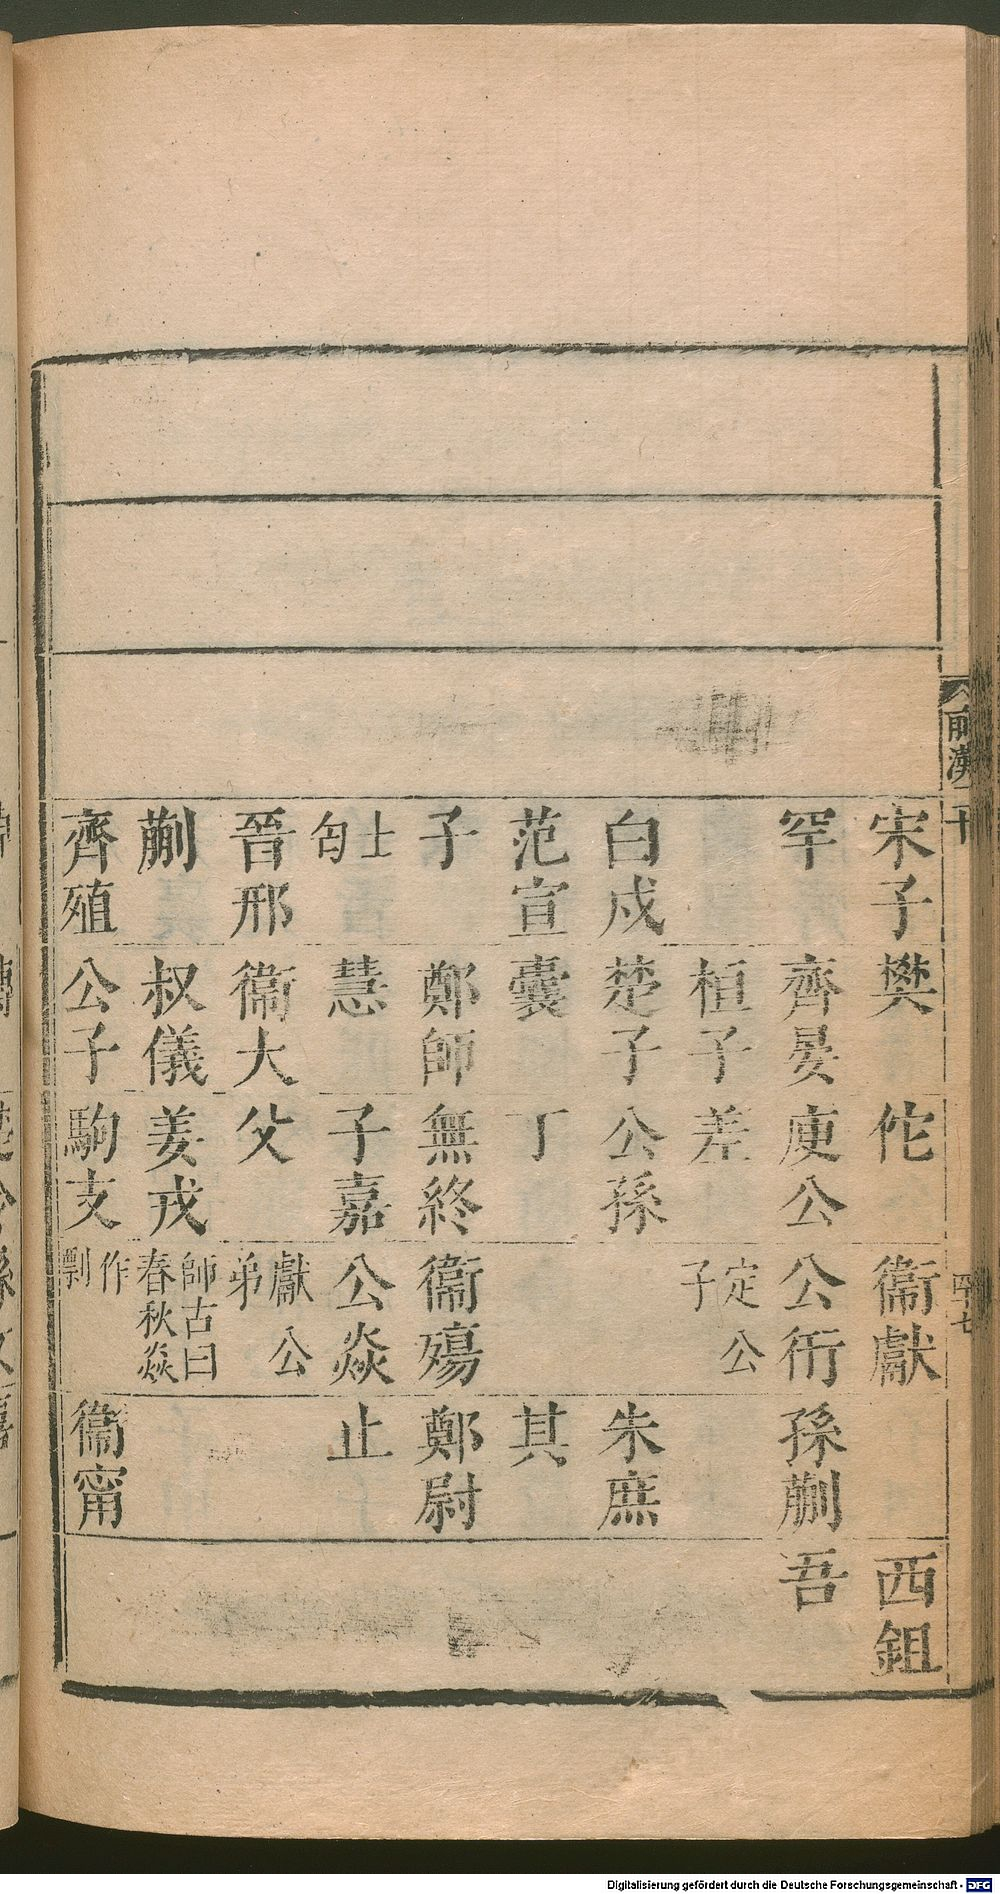 宋子樊佗衞獻西鉏
罕齊晏庚公公衎孫蒯吾
桓子差定公子
白成楚子公孫朱庶
范宣囊丁其
子鄭師無終衞殤鄭尉
士匄慧子嘉公焱止
晉邢衞大父獻公弟
蒯叔儀姜戎師古曰春秋焱
齊殖公子駒支作剽衞甯
前漢十
四十七
Digitalisierung gefördert durch die Deutsche Forschungsgemeinschaft - DFG